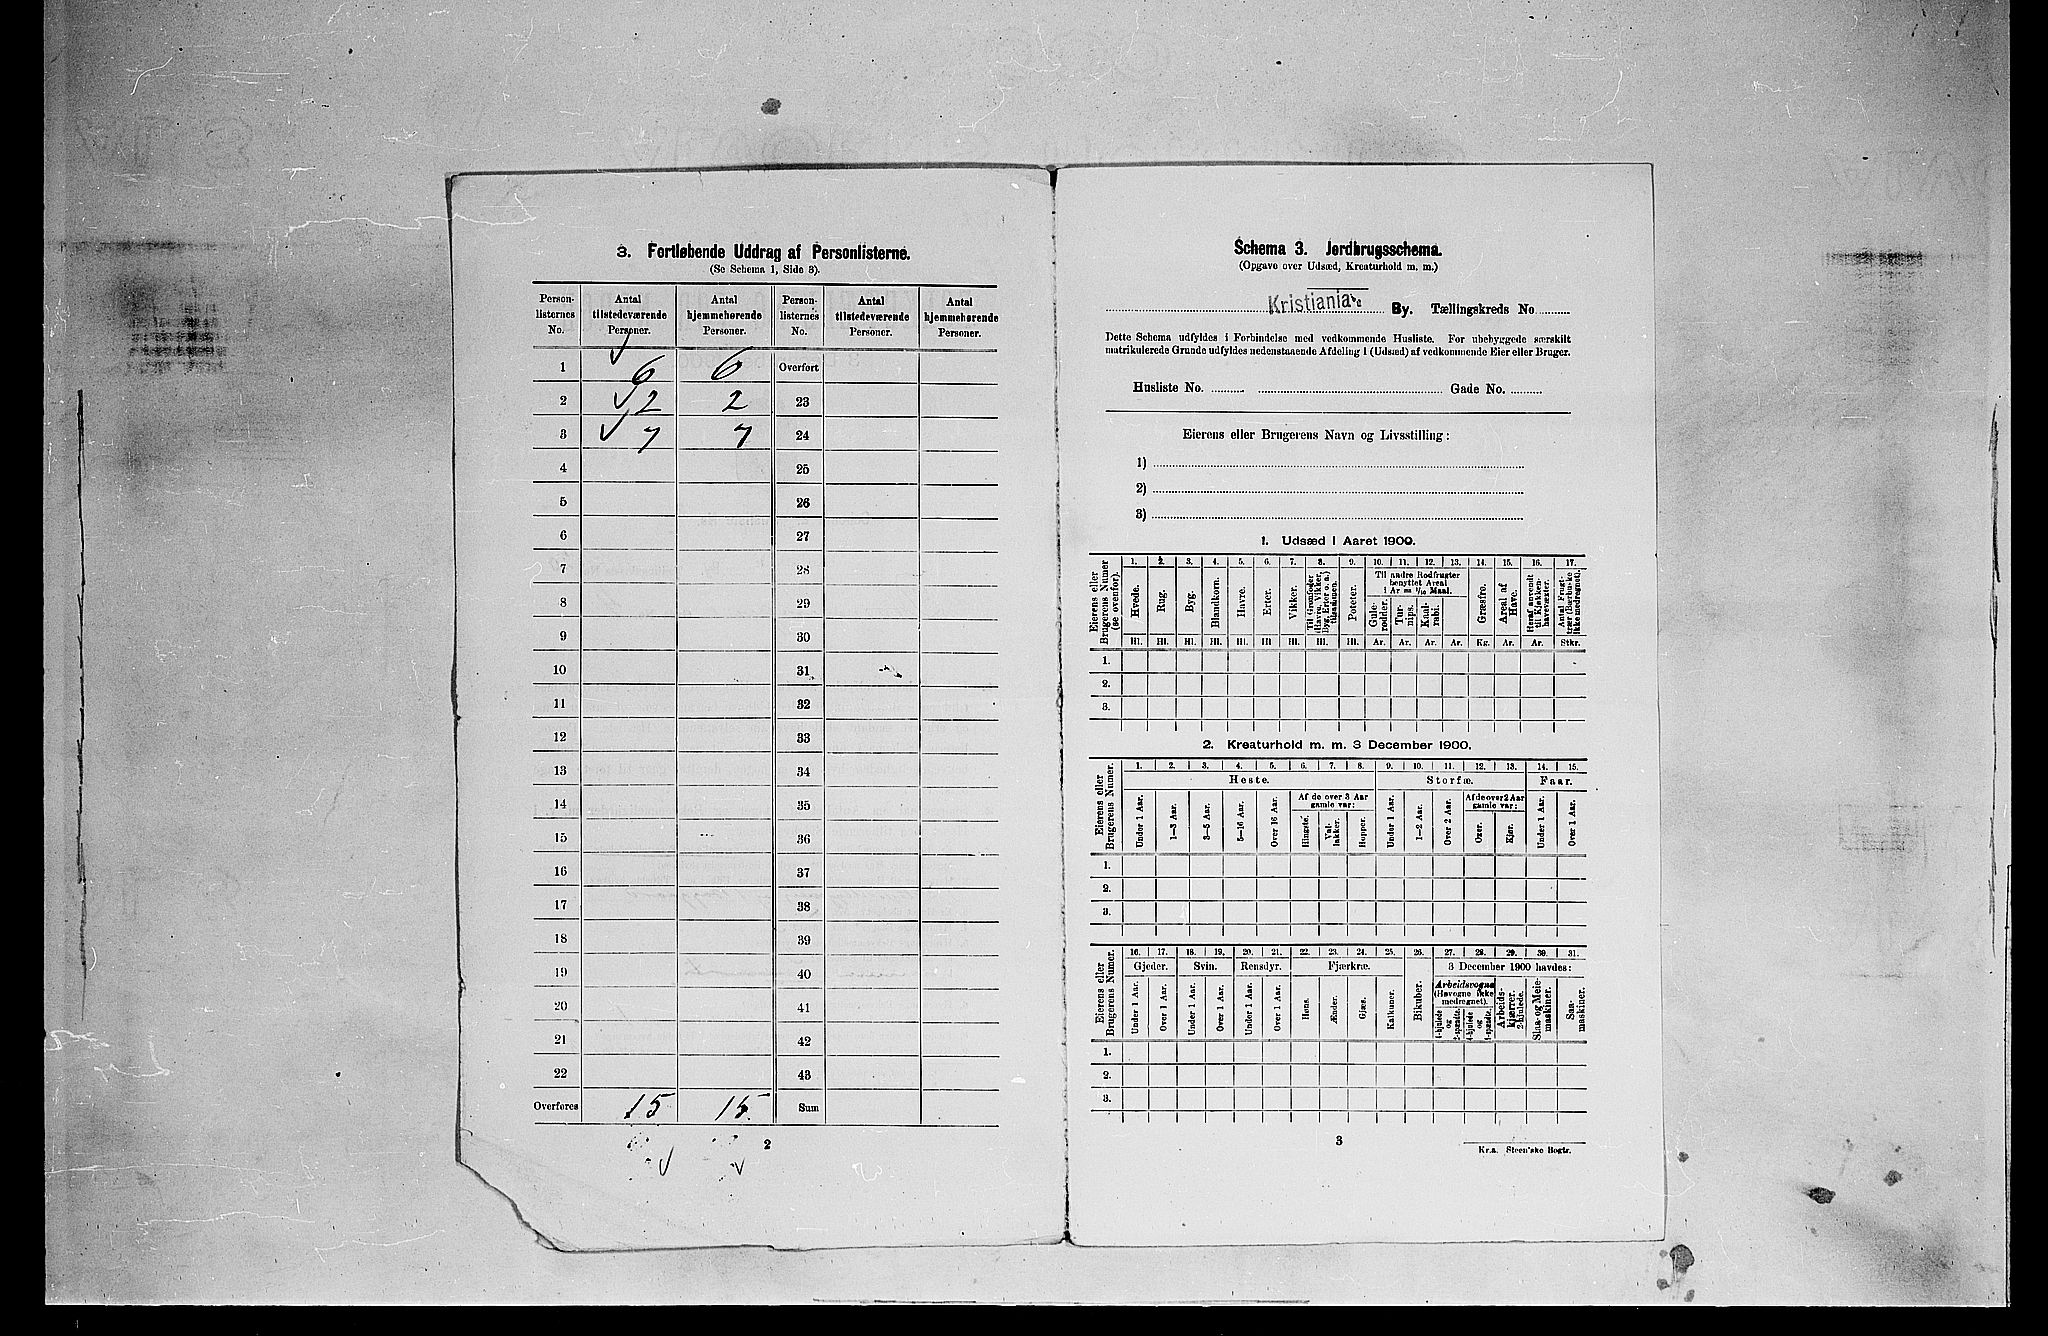 3. Fortløbende Uddrag af Personlisterne.
(Se Schema 1, Side 3).
Person-listernes No. | Antal tilstedeværende Personer. | Antal hjemmehørende Personer. | Person-listernes No. | Antal tilstedeværende Personer. | Antal hjemmehørende Personer.
1 6 6 Overført
2 2 2 23
3 7 7 24
4 25
5 26
6 27
7 28
8 29
9 30
10 31
11 32
12 33
13 34
14 35
15 36
16 37
17 38
18 39
19 40
20 41
21 42
22 43
Overføres 15 15 Sum
2
Schema 3. Jordbrugsschema.
(Opgave over Udsæd, Kreaturhold m. m.)
Kristiania By. Tællingskreds No.
Dette Schema udfyldes i Forbindelse med vedkommende Husliste. For ubebyggede særskilt
matrikulerede Grunde udfyldes nedenstaaende Afdeling 1 (Udsæd) af vedkommende Eier eller Bruger.
Husliste No. Gade No.
Eierens eller Brugerens Navn og Livsstilling:
1)
2)
3)
1. Udsæd i Aaret 1900.
Eierens eller Brugerens Numer (se ovenfor).
1. 2. 3. 4. 5. 6. 7. 8. 9. 10. 11. 12. 13. 14. 15. 16. 17.
Hvede. Rug. Byg. Blandkorn. Havre. Erter. Vikker. Til Grønfoder (Havre, Vikker, Byg, Erter o. a.) tilsaadmen. Poteter.
Til andre Rodfrugter benyttet Areal 1 Ar = 1/10 Maal.
Gule-rødder. Tur-nips. Kaal-rabi. Græsfrø. Areal af Have. Heraf anvendt til Kjøkken-havevæxter. Antal Frugt-trær (Bærbuske ikke medregnet).
Hl. Hl. Hl. Hl. Hl. Hl. Hl. Hl. Hl. Ar. Ar. Ar. Ar. Kg. Ar. Ar. Stkr.
1.
2.
3.
2. Kreaturhold m. m. 3 December 1900.
Eierens eller Brugerens Numer.
1. 2. 3. 4. 5. 6. 7. 8. 9. 10. 11. 12. 13. 14. 15.
Heste. Storfæ. Faar.
Af de over 3 Aar gamle var: Af de over 2 Aar gamle var:
Under 1 Aar. 1—3 Aar. 3—5 Aar. 5—16 Aar. Over 16 Aar. Hingste. Val-lakker. Hopper. Under 1 Aar. 1—2 Aar. Over 2 Aar. Oxer. Kjør. Under 1 Aar. Over 1 Aar.
1.
2.
3.
Eierens eller Brugerens Numer.
16. 17. 18. 19. 20. 21. 22. 23. 24. 25. 26. 27. 28. 29. 30. 31.
Gjeder. Svin. Rensdyr. Fjærkræ. 3 December 1900 havdes:
Under 1 Aar. Over 1 Aar. Under 1 Aar. Over 1 Aar. Under 1 Aar. Over 1 Aar. Høns. Ænder. Gjæs. Kalkuner. Bikuber.
Arbeidsvogne (Høvogne ikke medregnet). 4-hjulede og 2-spændte. 4-hjulede og 1-spændte. Arbeids-kjærrer. 2-hjulede. Slaa- og Meie-maskiner. Saa-maskiner.
1.
2.
3.
3
Kr.a. Steen'ske Bogtr.